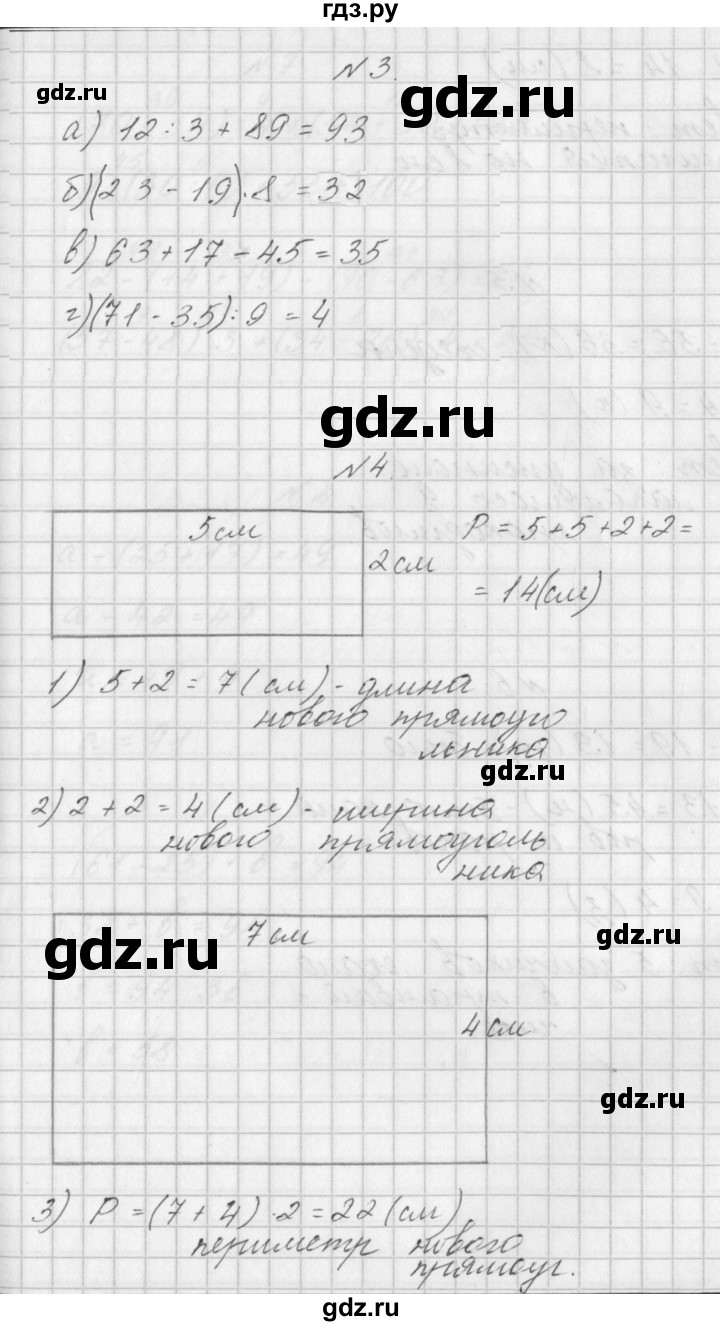 гдз.ру
№3.
gdz.ru
gdz.ru
а) 12 : 3 + 89 = 93
б) (23 - 19) · 8 = 32
в) 63 + 17 - 45 = 35
г) (71 - 35) : 9 = 4
gdz.ru
№4.
5 см
2 см
P = 5 + 5 + 2 + 2 =
= 14 (см)
1) 5 + 2 = 7 (см) - длина
нового прямоуго
льника
gdz.ru
2) 2 + 2 = 4 (см) - ширина
нового прямоуголь
ника
7 см
gdz.ru
gdz.ru
4 см
gdz.ru
3) P = (7 + 4) · 2 = 22 (см)
периметр нового
прямоуг.
gdz.ru